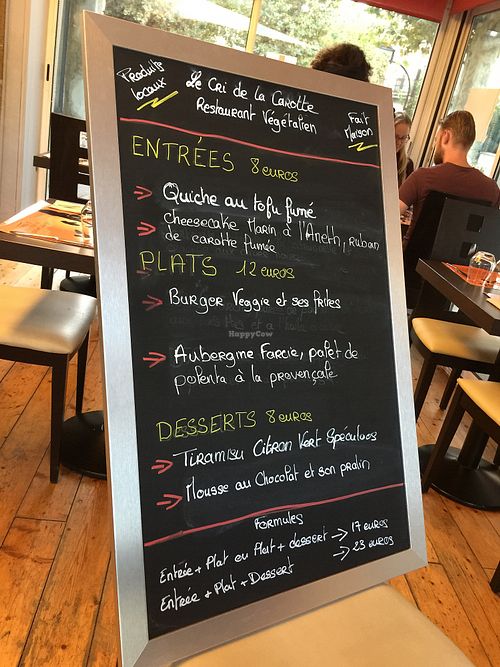 Produits
locaux
Le Cri de la Carotte
Restaurant Végétalien
Fait
Maison
ENTRÉES 8 euros
Quiche au tofu fumé
Cheesecake Marin à l'Aneth, Ruban
de carotte fumée
PLATS 12 euros
Burger Veggie et ses frites
HappyCow
Aubergine Farcie, palet de
polenta à la provençale
DESSERTS 8 euros
Tiramisu Citron Vert Spéculoos
Mousse au Chocolat et son pralin
Formules
Entrée + Plat ou Plat + dessert → 17 euros
Entrée + Plat + Dessert → 23 euros